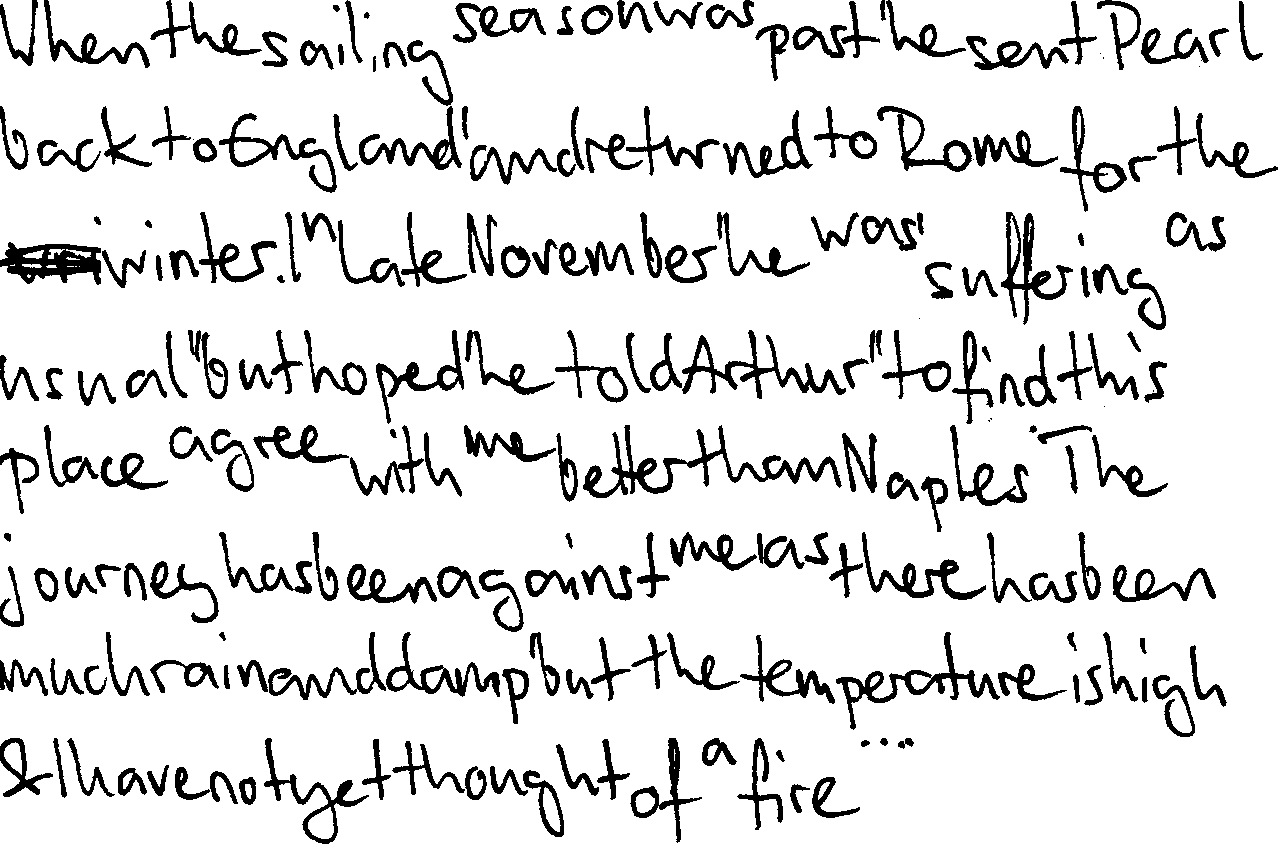 When the sailing season was past he sent Pearl
back to England' and returned to Rome for the
winter. In Late November" he was' suffering as
usual" but hoped" he told Arthur" to find this
place agree with me better than Naples. The
journey has been against me' as there has been
much rain and damp' but the temperature is high
& I have not yet thought of a fire ...